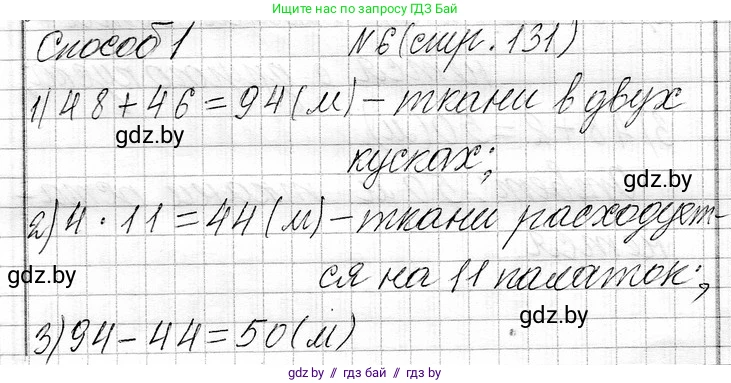 Нашли ответ по запросу GDZ БАЙ из ТОП 5
Способ 1 №6 (стр. 131)
1) 48 + 46 = 94 (м) - ткани в двух
gdz.by
кусках;
gdz.by
2) 4 · 11 = 44 (м) - ткани расходует-
gdz.by
ся на 11 палаток;
gdz.by
3) 94 - 44 = 50 (м)
gdz.by // гдз бай // гдз.бел